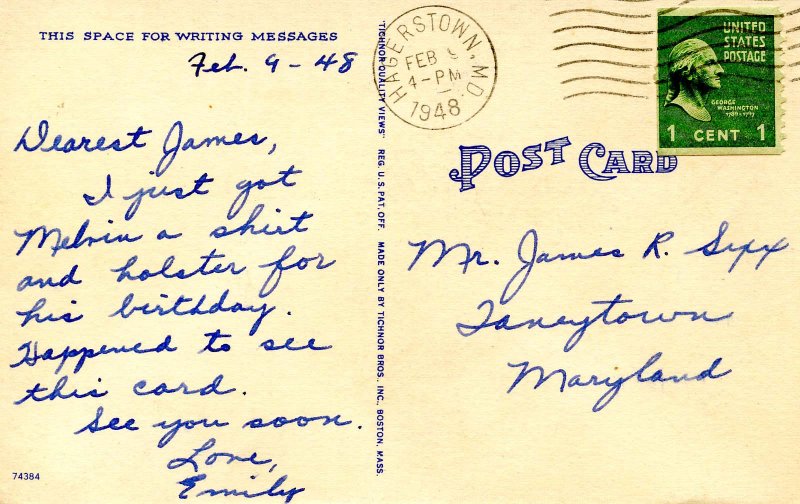 THIS SPACE FOR WRITING MESSAGES
Feb. 9-48
Dearest James,
I just got
Melvin a shirt
and holster for
his birthday.
Happened to see
this card.
See you soon.
Love,
Emily
74384
"TICHNOR QUALITY VIEWS" REG. U.S. PAT. OFF. MADE ONLY BY TICHNOR BROS. INC., BOSTON, MASS.
HAGERSTOWN, MD.
FEB
4-PM
1948
UNITED
STATES
POSTAGE
GEORGE
WASHINGTON
1789-1797
1 CENT 1
POST CARD
Mr. James R.
Taneytown
Maryland